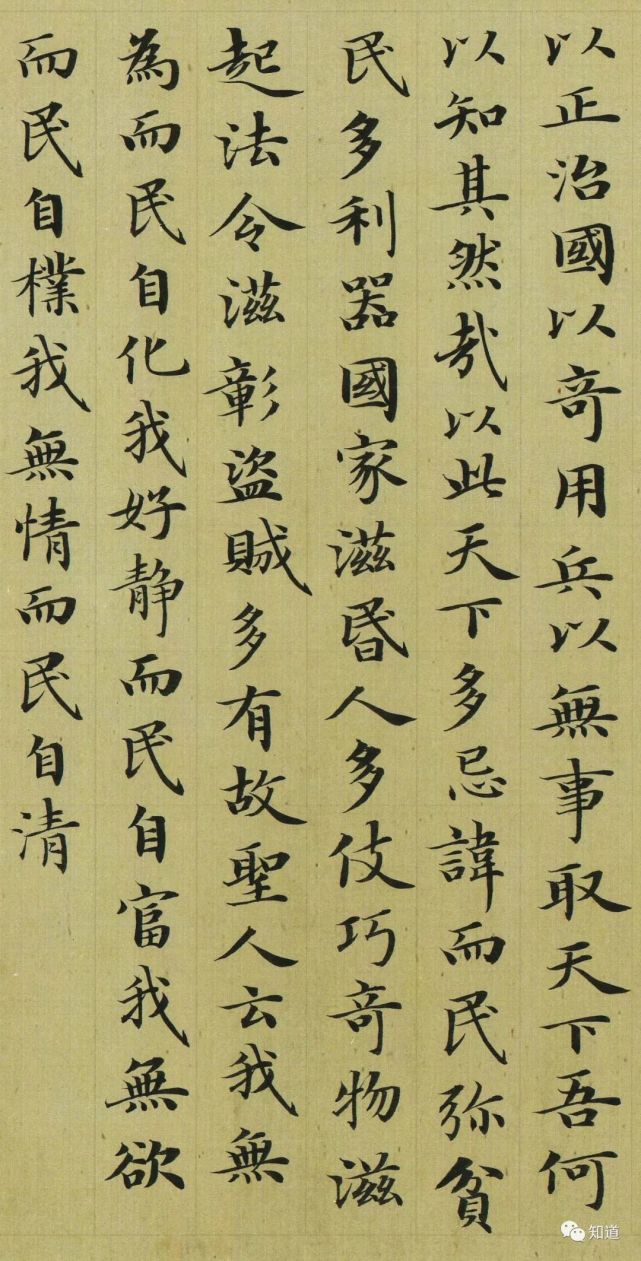 以正治國以竒用兵以無事取天下吾何
以知其然哉以此天下多忌諱而民弥貧
民多利器國家滋昏人多伎巧竒物滋
起法令滋彰盜賊多有故聖人云我無
為而民自化我好静而民自富我無欲
而民自樸我無情而民自清
知道